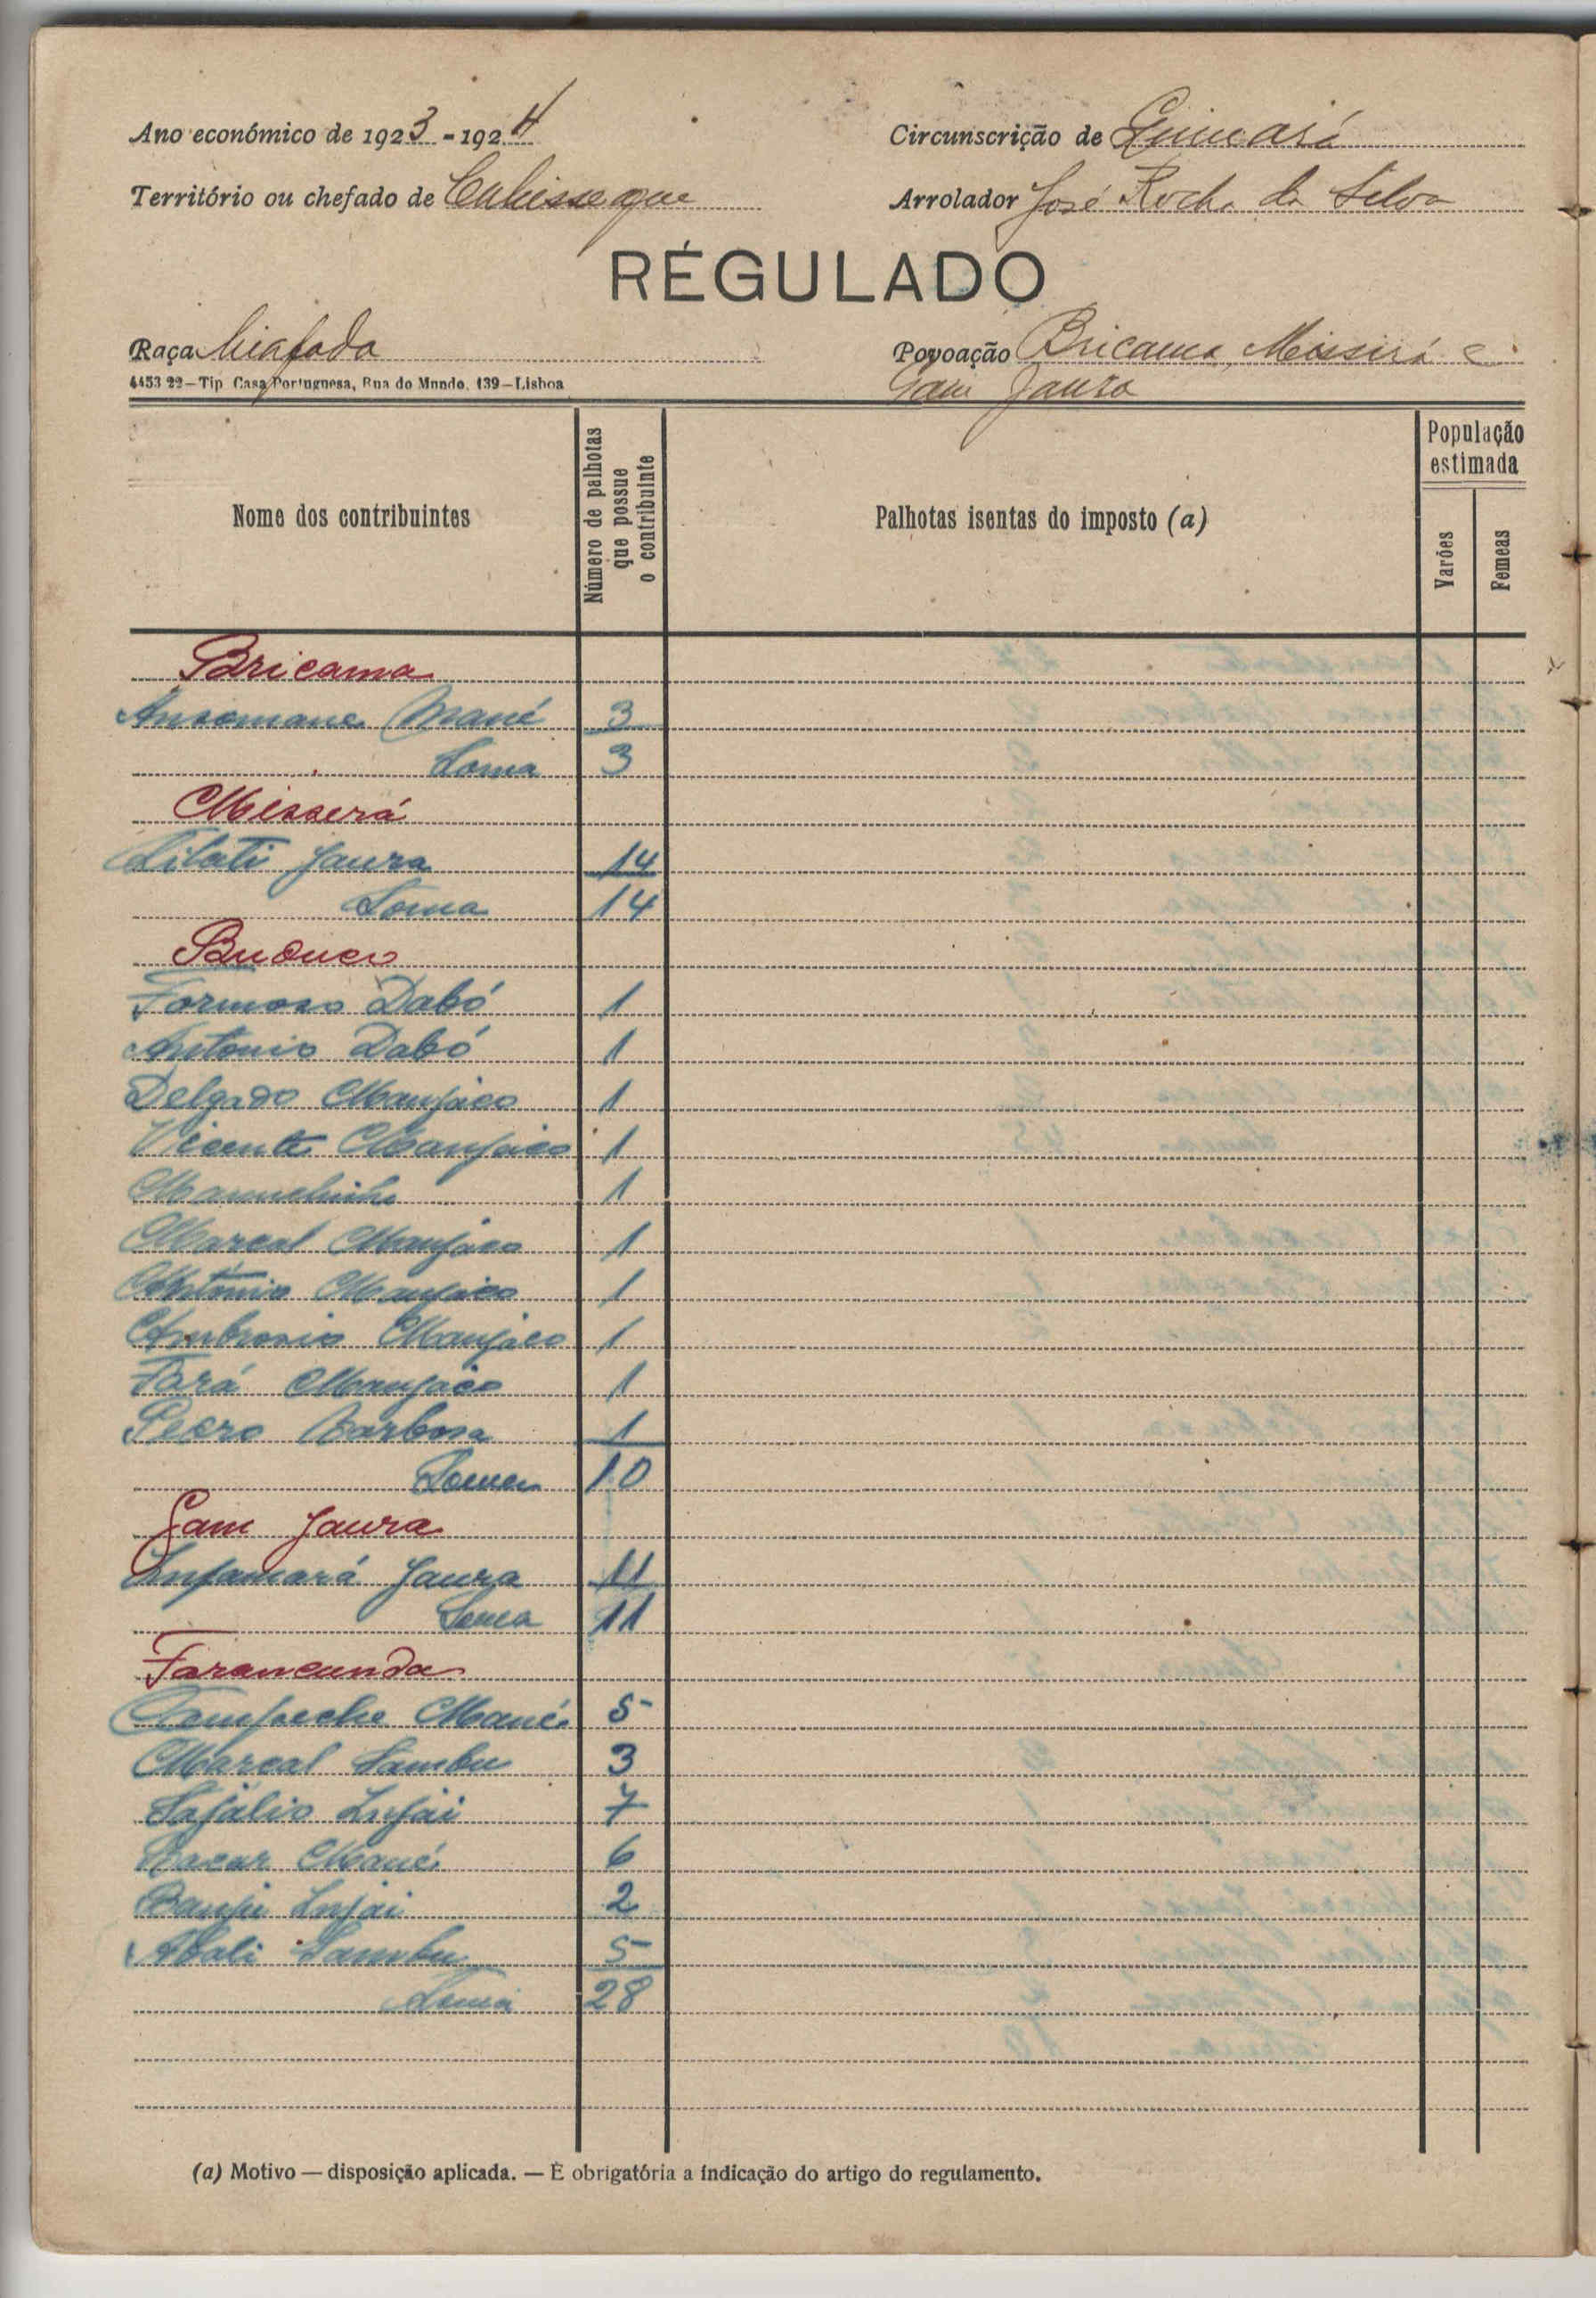 Ano económico de 1923-1924
Circunscrição de Quinará
Território ou chefado de Cubisseque
Arrolador José Rocha da Silva
RÉGULADO
Raça Biafada
Povoação Bricama, Missirá e
Gam Jaura
4453 22—Tip Casa Portuguesa, Rua do Mundo, 139—Lisboa
Nome dos contribuintes
Número de palhotas que possue o contribuinte
Palhotas isentas do imposto (a)
População estimada
Varões
Femeas
Bricama
Ansomane Mané 3
Soma 3
Misserá
Jaura 14
Soma 14
Buduco
Formoso Dabó 1
Antonio Dabó 1
Delgado Manjaco 1
Vicente Manjaco 1
1
Marcal Manjaco 1
Antonio Manjaco 1
Ambrosio Manjaco 1
Fará Manjaco 1
Pedro Barbosa 1
Soma 10
Gam Jaura
Infamará Jaura 11
Soma 11
Farancunda
Mané 5
Marcal Sambu 3
Injai 7
Bacar Mané 6
Injai 2
Sambu 5
Soma 28
(a) Motivo — disposição aplicada. — É obrigatória a indicação do artigo do regulamento.